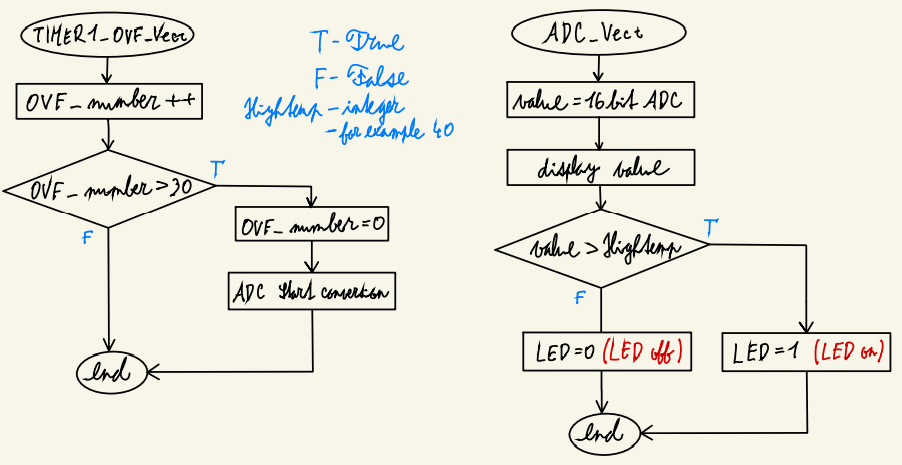 TIMER1_OVF_Vect
OVF_number++
OVF_number>30
T
F
OVF_number=0
ADC Start conversion
end
T-True
F-False
Hightemp-integer
-for example 40
ADC_Vect
value=16bit ADC
display value
value>Hightemp
T
F
LED=0 (LED off)
LED=1 (LED on)
end